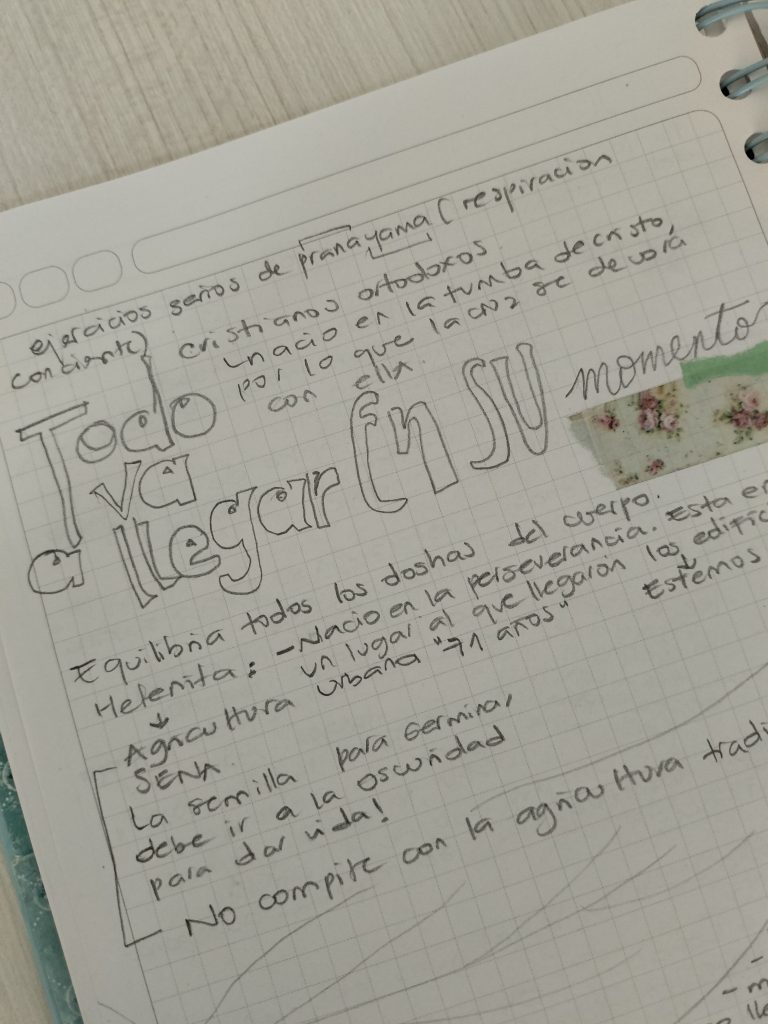 ejercicios serios de pranayama (respiracion
conciente)
cristianos ortodoxos
nacio en la tumba de cristo,
por lo que la cruz se devora
con ella.
Todo
va
a llegar En SU momento
Equilibria todos los doshas del cuerpo.
Helenita: - Nacio en la perseverancia. Esta en
un lugar al que llegaron los edific
Agricultura urbana "71 años" Estemos
SENA
La semilla para germinar
debe ir a la oscuridad
para dar vida!
No compite con la agricultura tradi